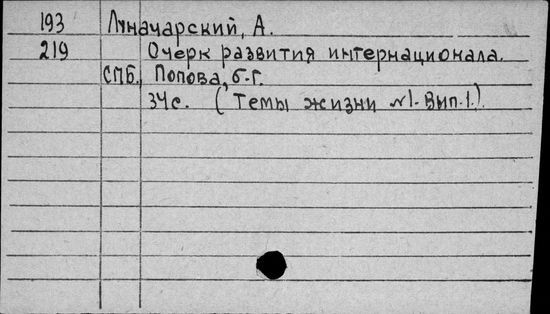 193 Луначарский, А.
219 Очерк развития интернационала.
СПБ., Попова, б.г.
34с. (Темы жизни №1. вып.1.).